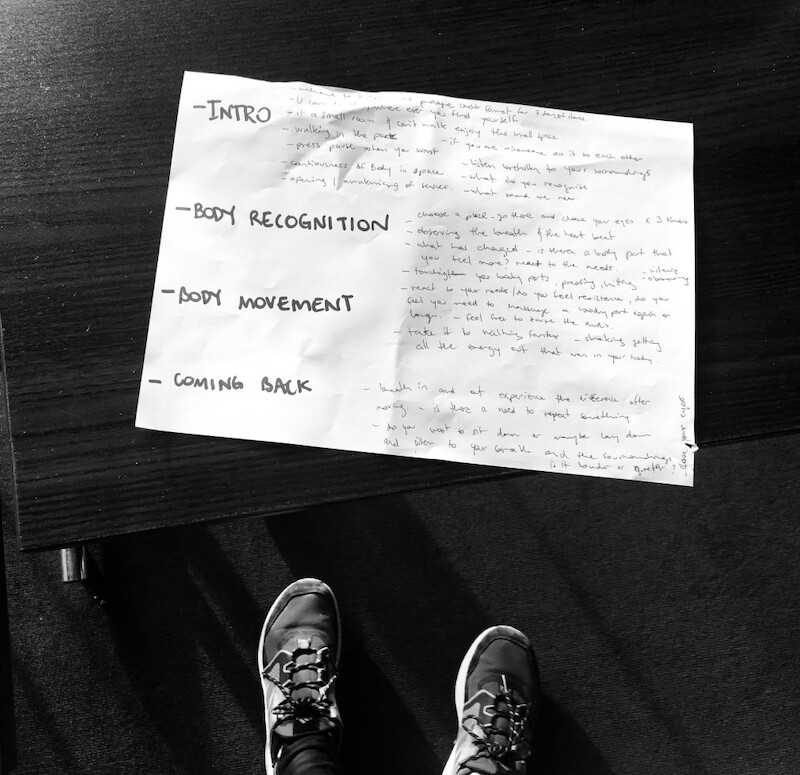 - INTRO
- welcome to
format for
- where ever you find yourself
- if a small room & can't walk enjoy the small space
- walking in the park - if you are misomeone do it to each other
- press pause when you want - listen carefully to your surroundings
- contiousness of Body in space - what do you recognise
- opening / awakening of senses - what sound are near
- BODY RECOGNITION
- choose a place - go there and close your eyes x 3 times
- observing the breath & the heart beat
- what has changed - is there a body part that
you feel more? react to the needs
- touching your body parts, pressing, hitting - listening
- observing
- BODY MOVEMENT
- react to your needs / do you feel resistance, do you
feel you need to massage a body part again or
longer - feel free to take the
- take it to walking faster - shaking getting
all the energy out that was in your body.
- COMING BACK
- breath in and out experience the difference after
moving - is there a need to repeat something
- do you want to sit down or maybe lay down
and listen to your breath and the sourroundings
is it louder or quieter?
- close your eyes